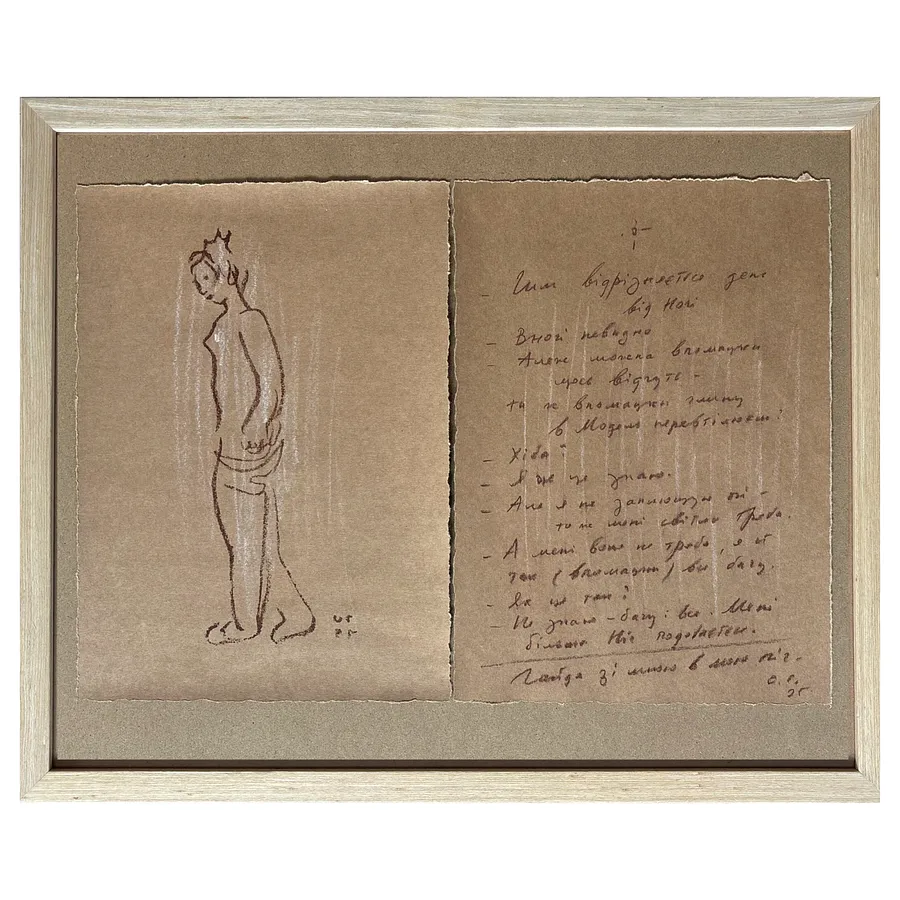 - Чим відрізняється день
від Ночі
- Вночі невидно
- Але ж можна впомацки
щось відчуть -
ти ж впомацки глину
в Модель перевтілюєш!
- Хіба?
- Я це знаю.
- Але я не заплющую очі -
то ж мені світло треба.
- А мені воно не треба, я й
так (впомацки) все бачу.
- Як це так?
- Не знаю - бачу і все. Мені
більше Ніч подобається.
Гайда зі мною в мою ніч.
О.Р.
25